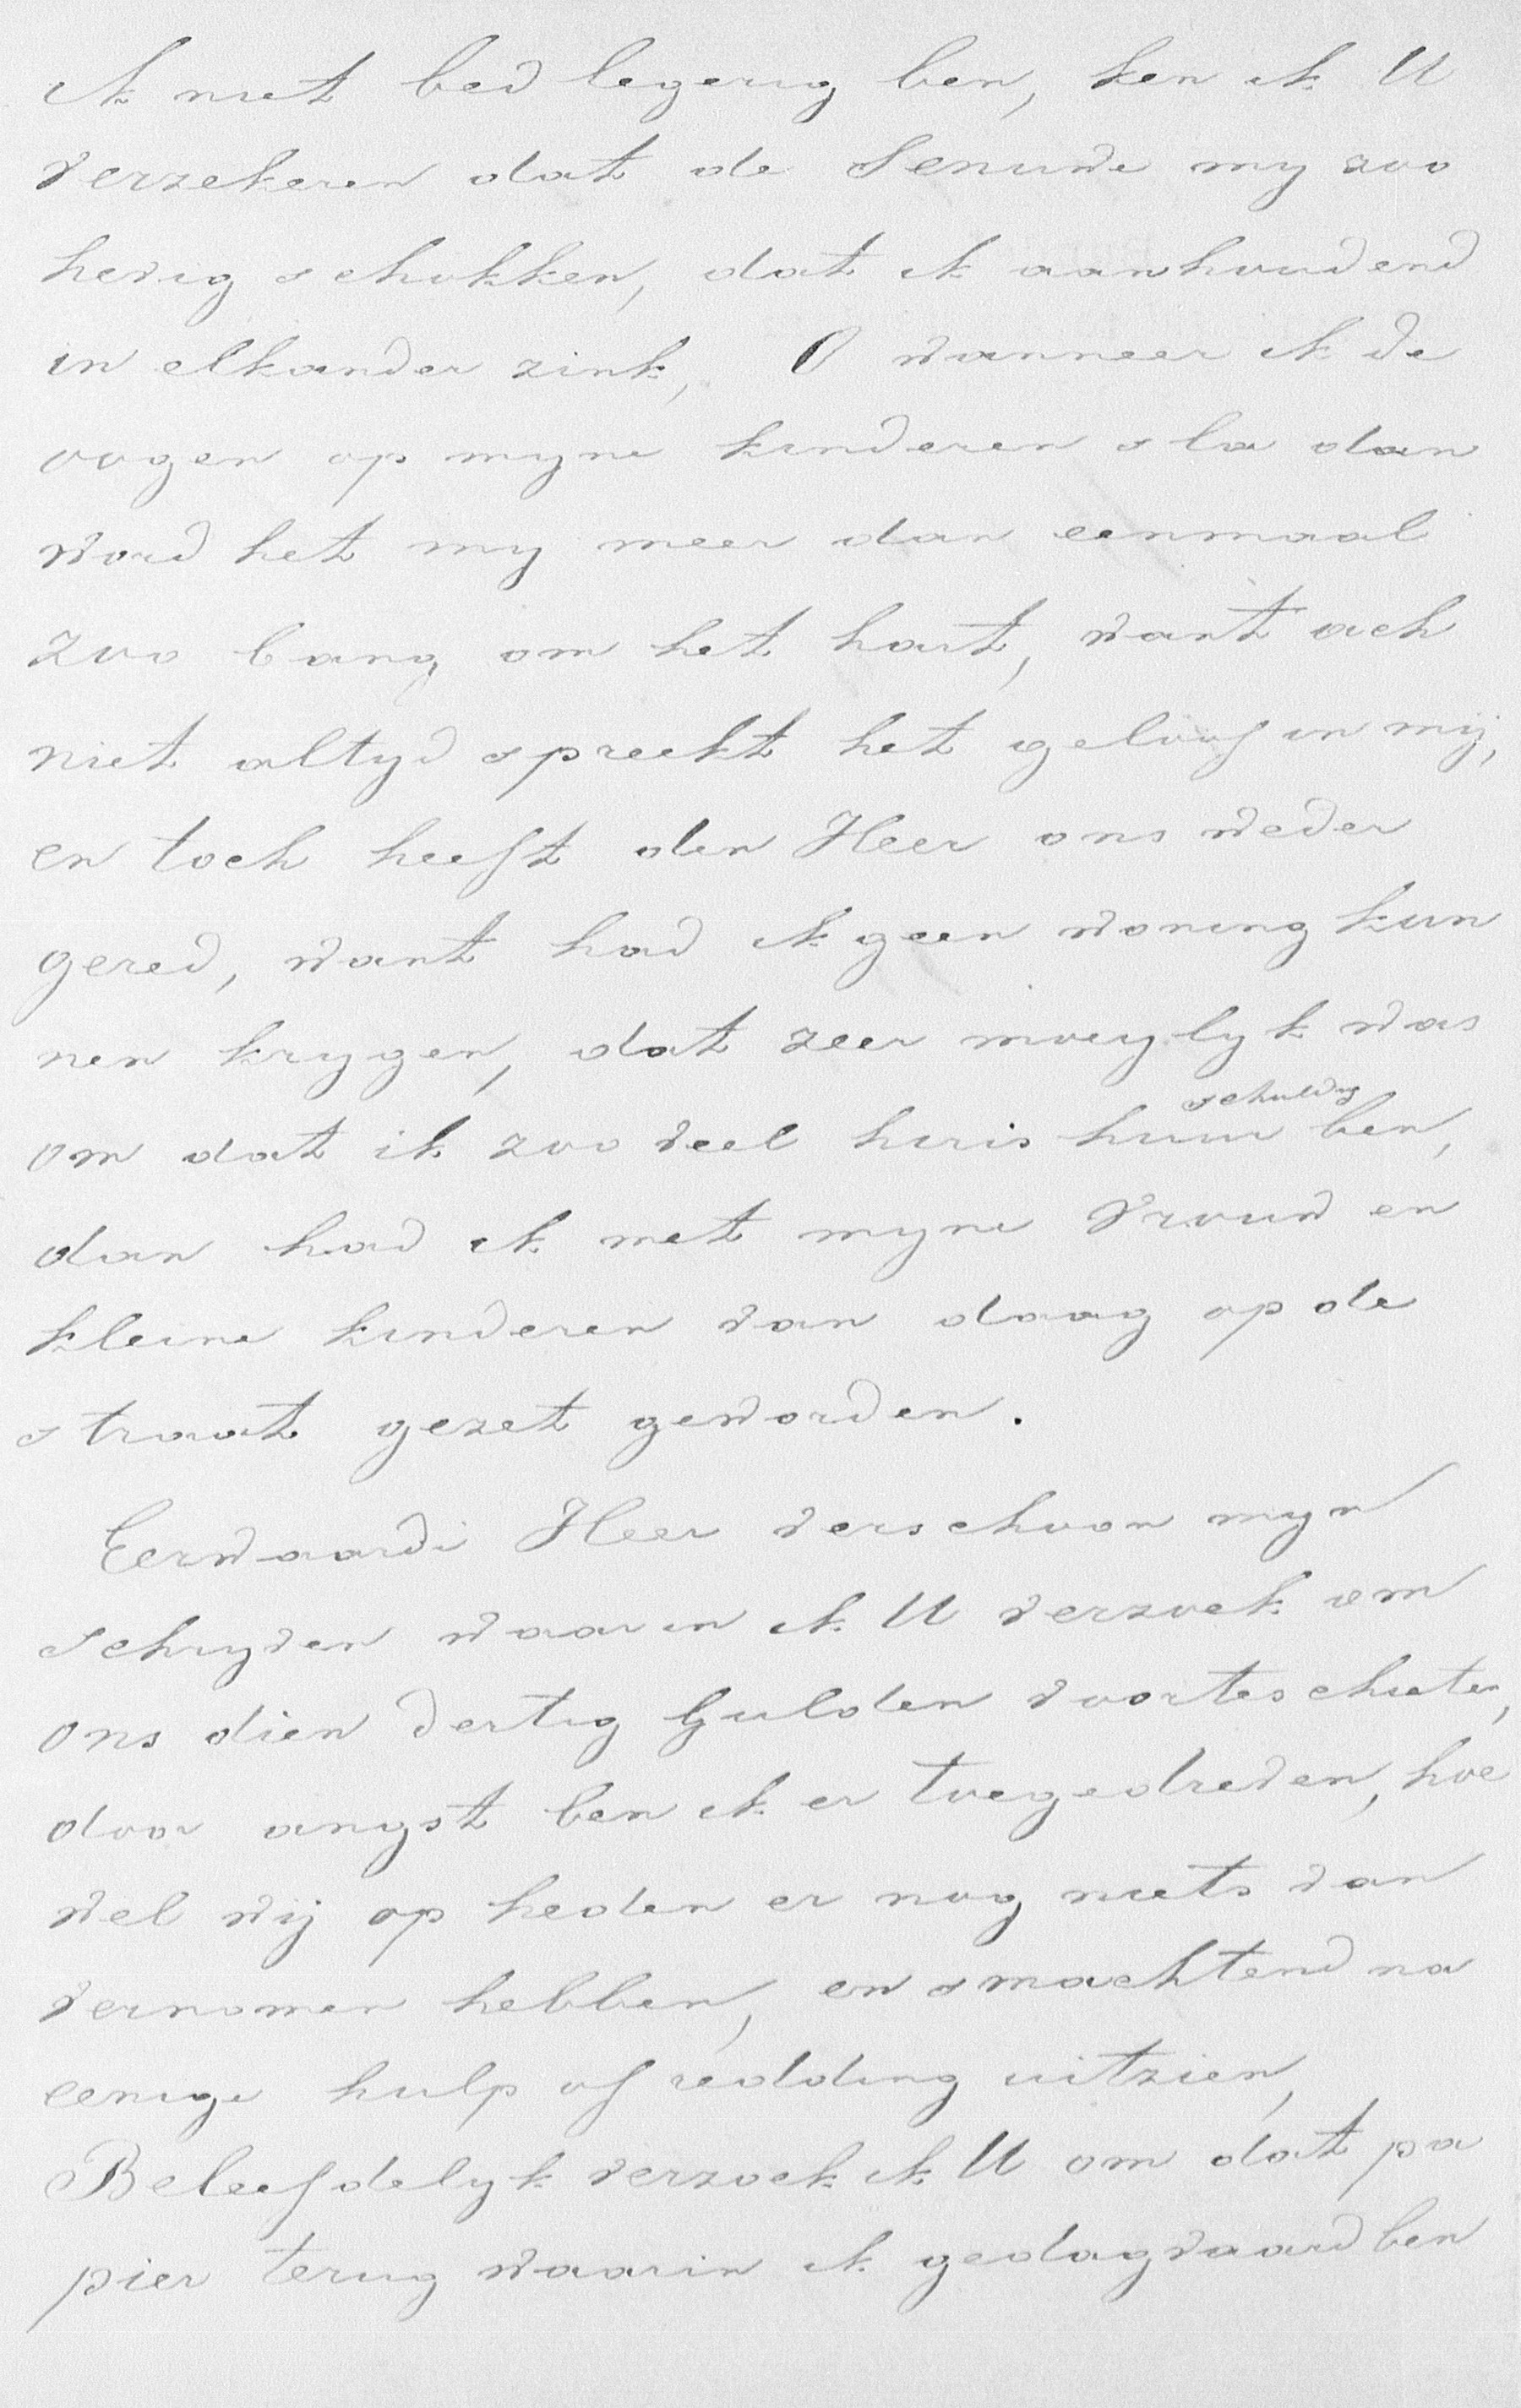 ik niet bed legerig ben, ken ik U
verzekeren dat de Senuwe my zoo
hevig schokken, dat ik aanhoudend
in elkander zink, O wanneer ik de
oogen op myne kinderen sla dan
word het my meer dan eenmaal
zoo bang om het hart, want ach
niet altyd spreekt het geloof in mij,
en toch heeft den Heer ons weder
gered, want had ik geen woning kun
nen krygen, dat zeer moeylyk was
om dat ik zoo veel huis huur schuldig ben,
dan had ik met myne vrouw en
kleine kinderen van daag op de
straat gezet geworden.
Eerwaarde Heer verschoon myn
schryven waarin ik U verzoek om
ons dien dertig Gulden voorteschieten,
door angst ben ik er toegedreven, hoe
wel wij op heden er nog niets van
vernomen hebben, en smachtend na
eenige hulp of redding uitzien,
Beleefdelyk verzoek ik U om dat pa
pier terug waarin ik gedagvaard ben